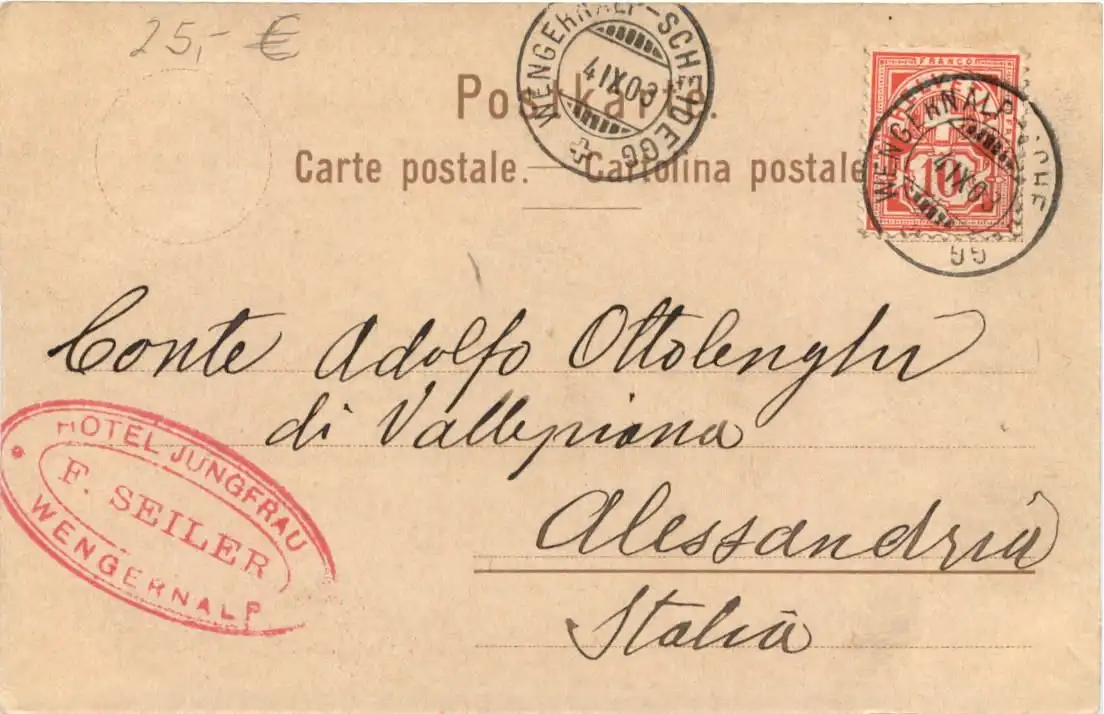 25,- €
WENGERNALP-SCHEIDEGG
4 IX 03
Postkarte.
Carte postale. Cartolina postale
FRANCO
10
WENGERNALP-SCHE
4 IX 03
Conte Adolfo Ottolenghi
di Vallepiana
Alessandria
Italia
HOTEL JUNGFRAU
F. SEILER
WENGERNALP